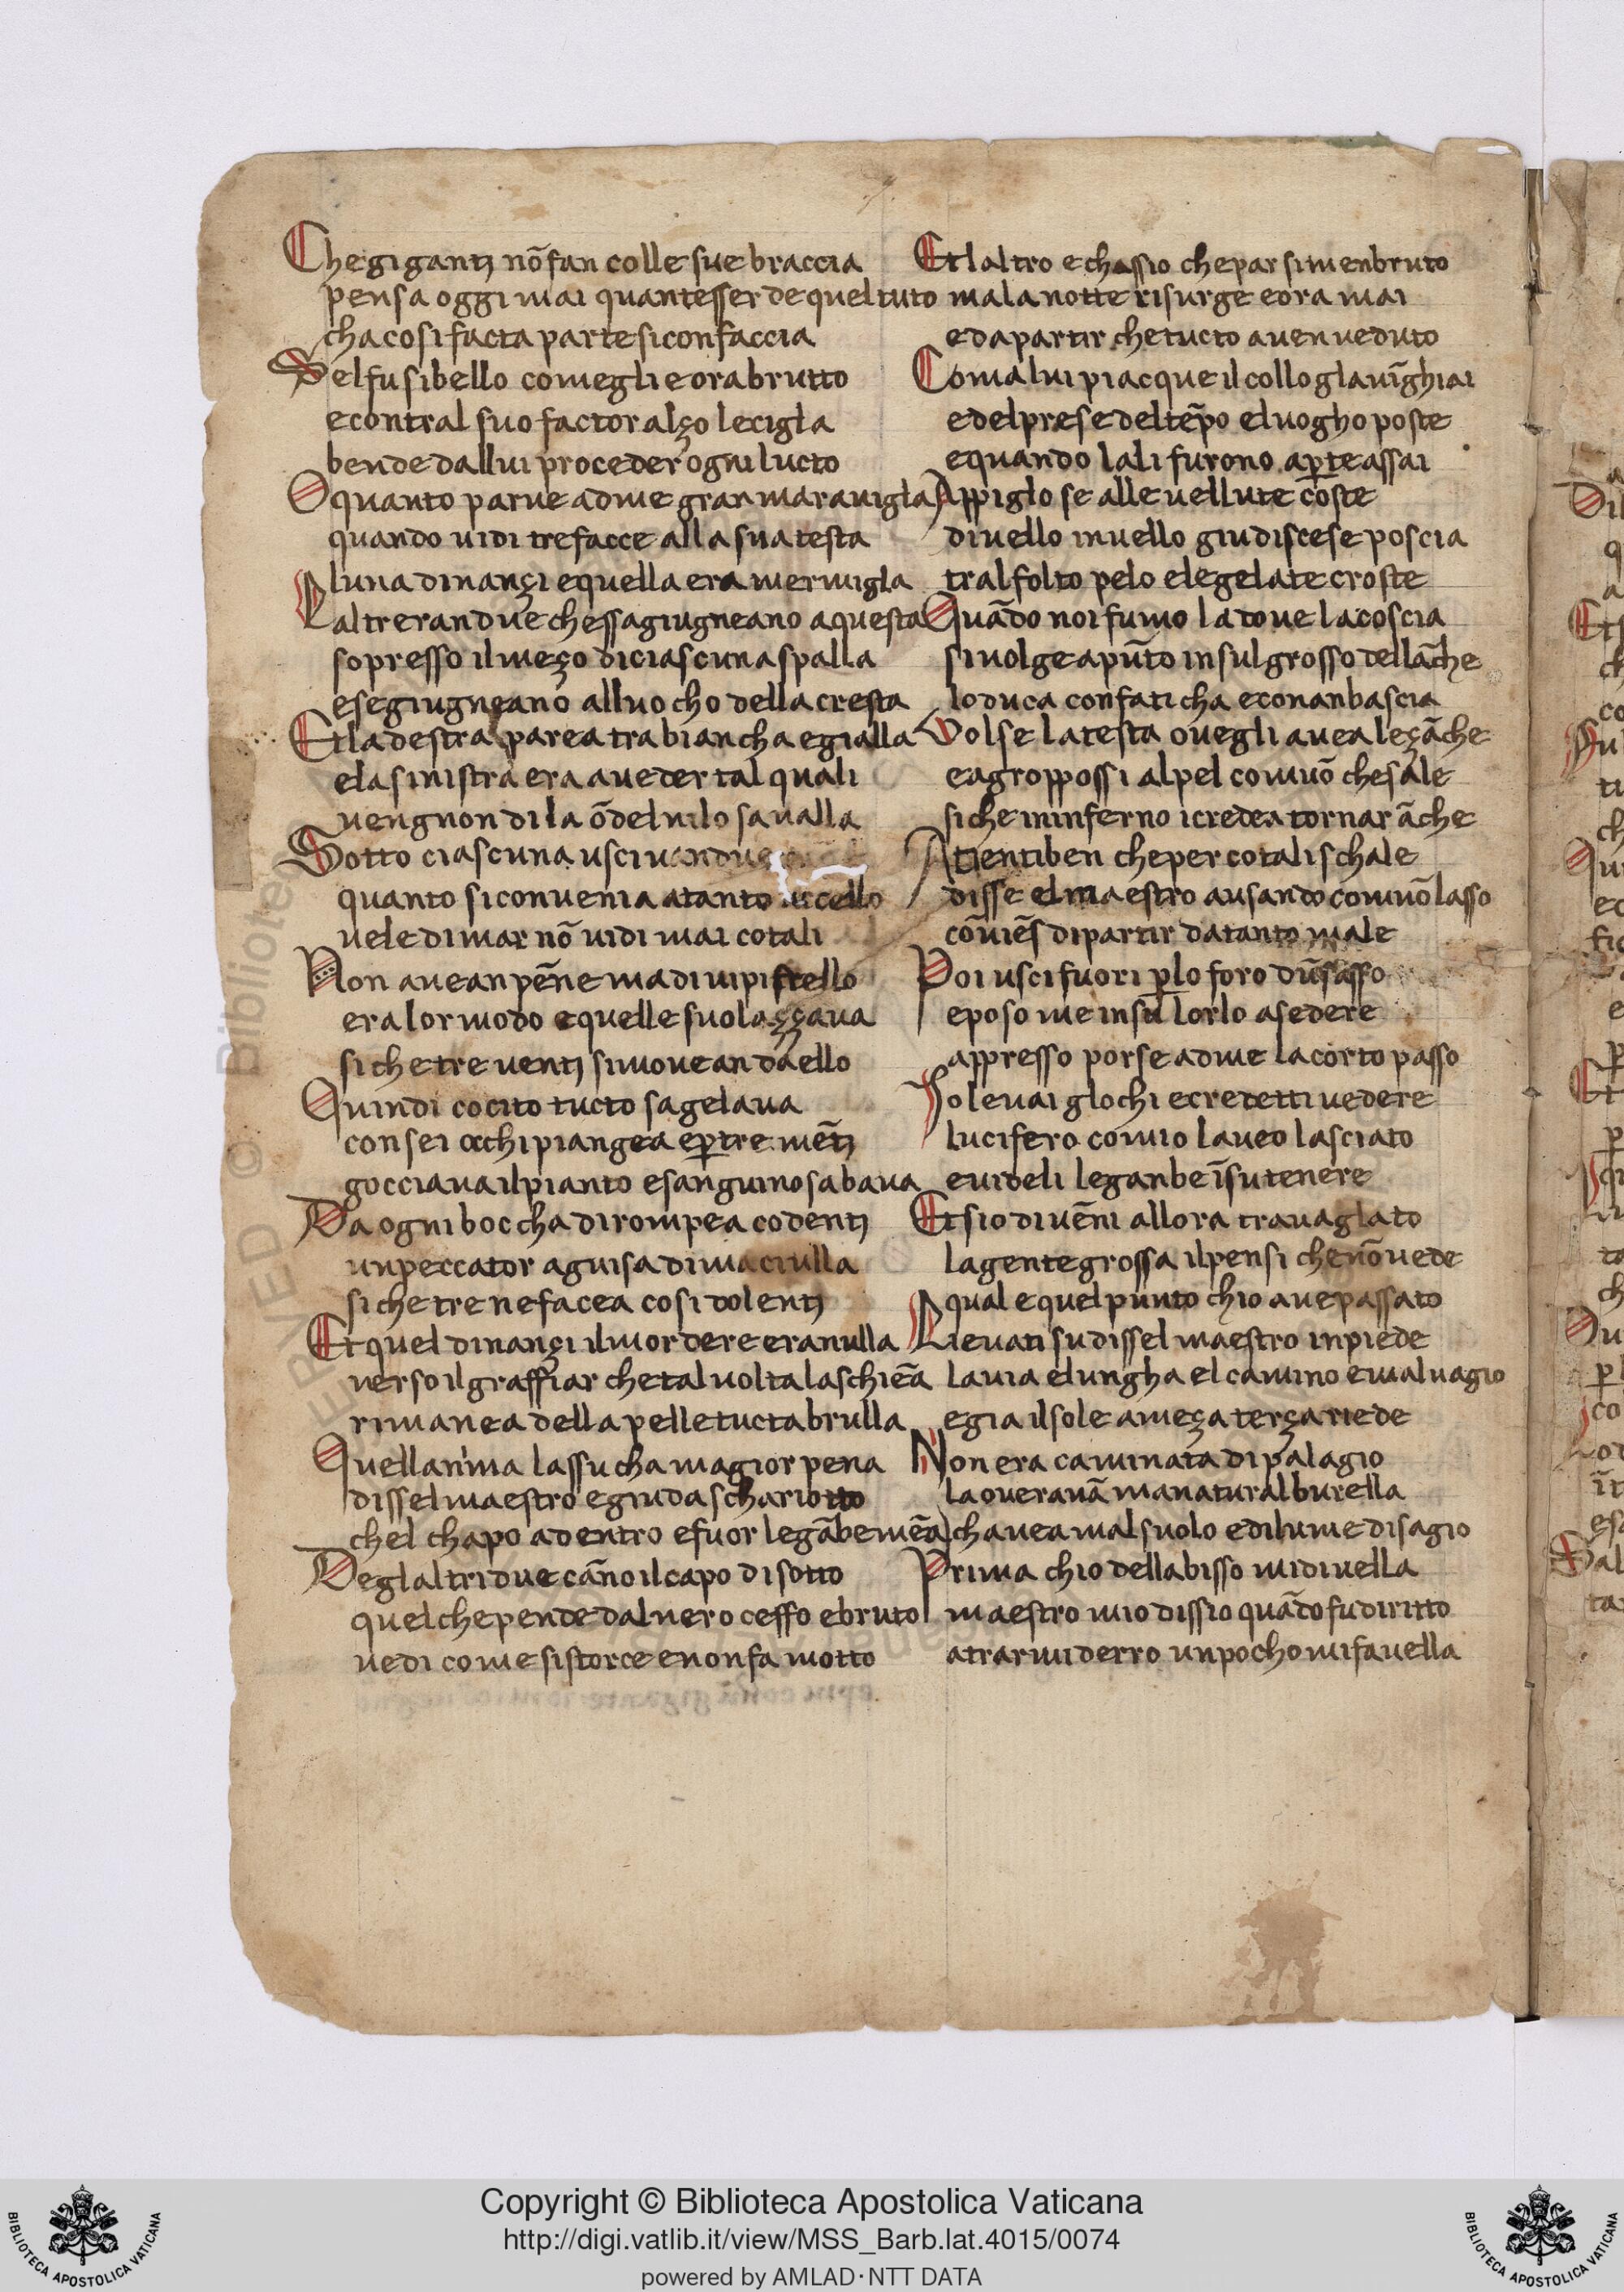 Che giganti nō fan colle sue braccia
pensa oggi mai quantesser de quel tuto
cha cosi facta parte si confaccia
Sel fu si bello comegli e ora brutto
e contral suo factor alço le cigla
ben de dallui proceder ogni lucto
O quanto parue ad me gran marauigla
quando uidi tre facce alla sua testa
luna dinançi e quella era mermigla
Laltreran due chessagiugneano a questa
sopresso il meço di ciascuna spalla
e se giugneano alluocho della cresta
Et la destra parea tra biancha e gialla
e la sinistra era aueder tal quali
uengnon di la ōdel nilo saualla
Sotto ciascuna usciuan due
quanto si conuenia a tanto uccello
uele di mar nō uidi mai cotali
Non auean pēne ma di uipistrello
era lor modo e quelle suolaççaua
si che tre uenti si mouean da ello
Quindi cocito tucto sagelaua
con sei occhi piangea e p̄ tre mēti
gocciaua il pianto e sanguinosa baua
Da ogni boccha dirompea co denti
un peccator a guisa di maciulla
si che tre ne facea cosi dolenti
Et quel dinançi il mordere era nulla
uerso il graffiar che tal uolta la schiēa
rimanea della pelle tucta brulla
Quellanima lassu cha magior pena
dissel maestro e giuda schariotto
chel chapo a dentro e fuor le gābe mēa
Deglaltri due cāno il capo di sotto
quel che pende dal nero ceffo e bruto
uedi come si storce e non fa motto
Et laltro e chassio che par si menbruto
ma la notte risurge e ora mai
e da partir che tucto auen ueduto
Coma lui piacque il collo glauīghiai
ed el prese del tēpo e luogho poste
e quando lali furono ap̄te assai
Appiglo se alle uellute coste
di uello in uello giu discese poscia
tral folto pelo e le gelate croste
Quādo noi fumo la doue la coscia
si uolge apūto in sul grosso dellāche
lo duca con faticha e con anbascia
Volse la testa ouegli auea le çāche
e agroppossi al pel comuō che sale
si che ninferno i credea tornar āche
Attienti ben che per cotali schale
disse el maestro ausando comuō lasso
cōuiēsi dipartir da tanto male
Poi usci fuori p̄ lo foro dūsasso
e poso me in sū lorlo a sedere
appresso porse ad me lacorto passo
Io leuai glochi e credetti uedere
lucifero comio lauea lasciato
e uideli le ganbe ī su tenere
Et sio diuēni allora trauaglato
la gente grossa il pensi che nō uede
qual e quel punto chio aue passato
Lieuati su dissel maestro in piede
la uia e lungha el camino e maluagio
e gia il sole a meça terça riede
Non era caminata di palagio
la oue rauā ma natural burella
chauea mal suolo e di lume disagio
Prima chio dellabisso mi diuella
maestro mio dissio quādo fu diritto
a trarmi derro un pocho mi fauella
Copyright © Biblioteca Apostolica Vaticana
http://digi.vatlib.it/view/MSS_Barb.lat.4015/0074
powered by AMLAD·NTT DATA
BIBLIOTECA APOSTOLICA VATICANA
BIBLIOTECA APOSTOLICA VATICANA